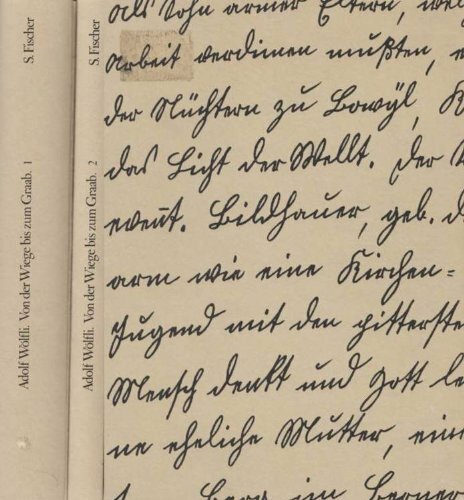 S. Fischer
Adolf Wölfli. Von der Wiege bis zum Graab. 1
S. Fischer
Adolf Wölfli. Von der Wiege bis zum Graab. 2
als Sohn armer Eltern, wel
arbeit verdienen mußten,
der Nüchtern zu Bowÿl, K
das Licht der Wellt. Der
event. Bildhauer, geb. d
arm wie eine Kirchen=
Jugend mit den pitterste
Mensch denkt und Gott le
ne eheliche Mutter, eine
Berg im Berner